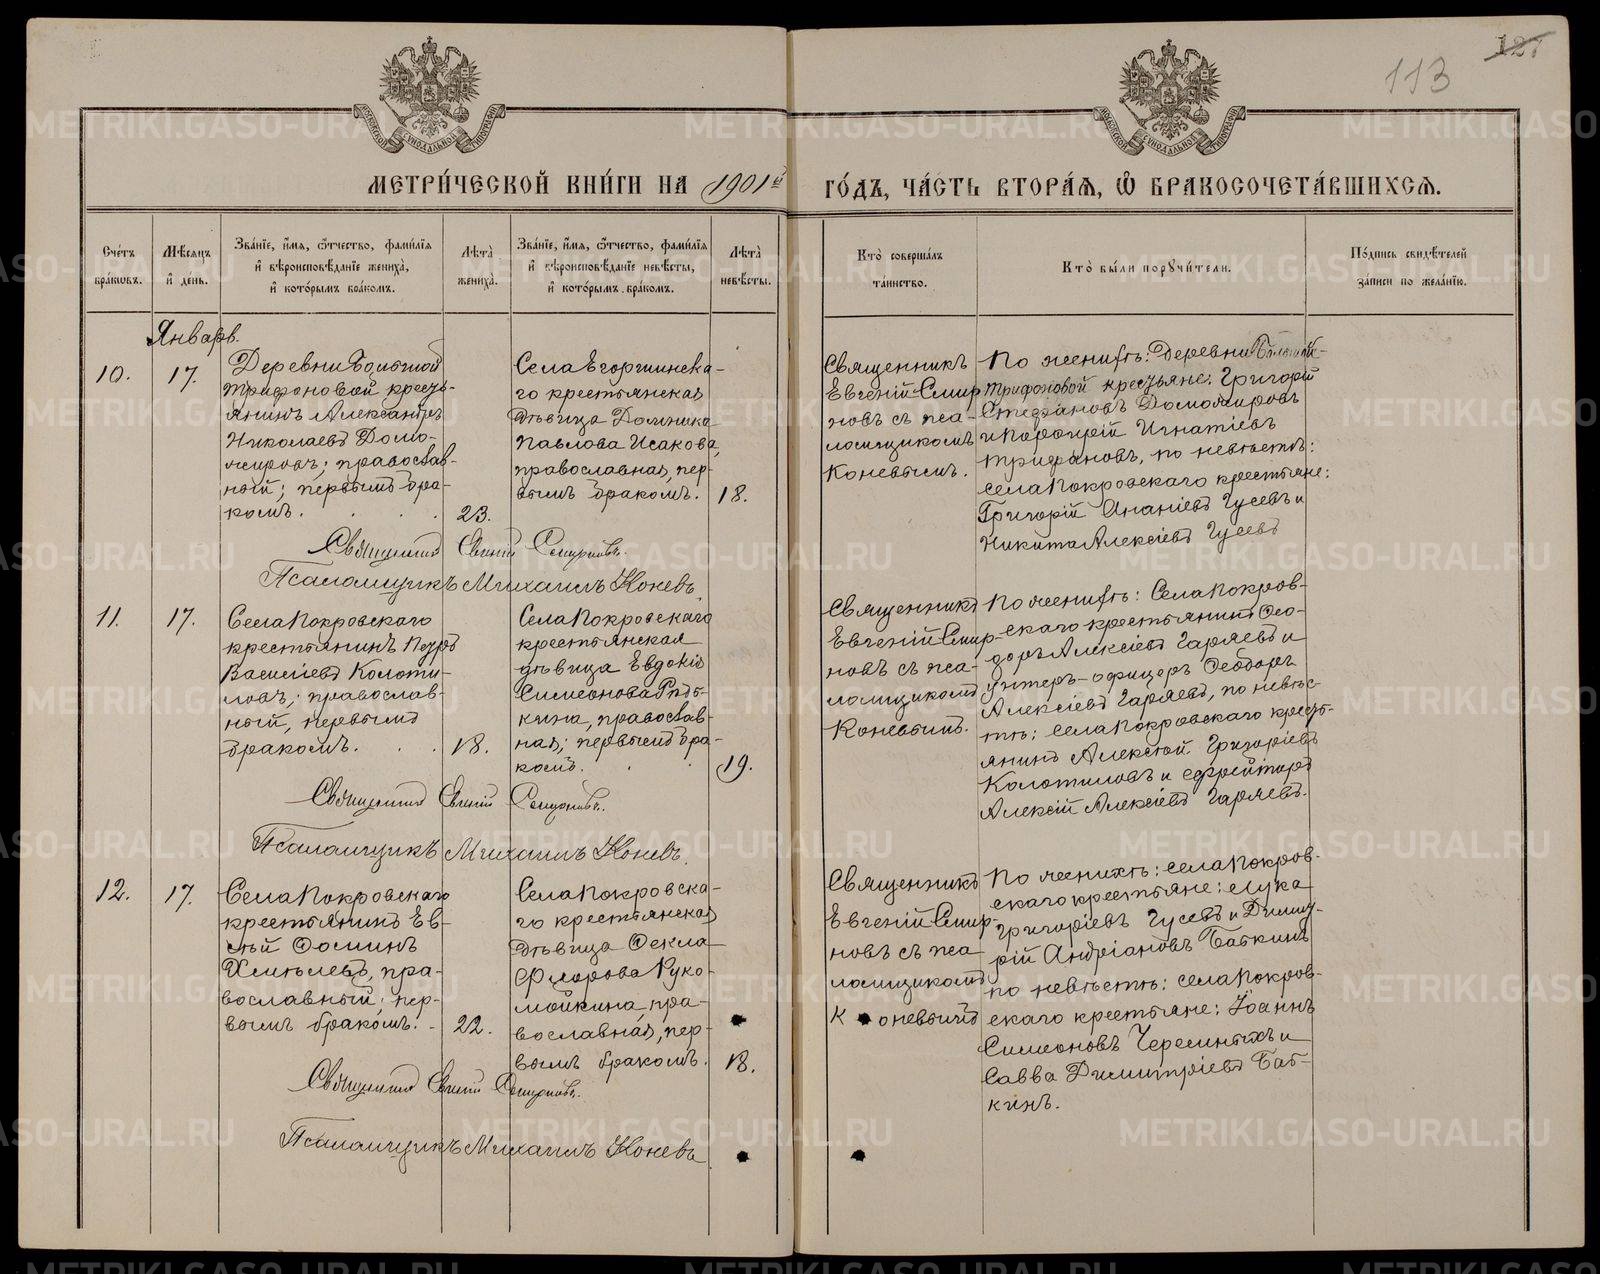 121
113
МОСКОВСКОЙ СѴНОДАЛЬНОЙ ТИПОГРАФІИ
МОСКОВСКОЙ СѴНОДАЛЬНОЙ ТИПОГРАФІИ
МЕТРИ́ЧЕСКОЙ КНИ́ГИ НА 1901й ГО́ДЪ, ЧА́СТЬ ВТОРА́Я, Ѽ БРАКОСОЧЕТА́ВШИХСЯ.
Сче́тъ бра́кѡвъ.
Мѣ́сяцъ и҆ де́нь.
Зва́нїе, и҆́мя, ѻ҆́тчество, фами́лїя и҆ вѣроисповѣ́данїе жениха̀, и҆ кото́рымъ бра́комъ.
Лѣта̀ жениха̀.
Зва́нїе, и҆́мя, ѻ҆́тчество, фами́лїя и҆ вѣроисповѣ́данїе невѣ́сты, и҆ кото́рымъ бра́комъ.
Лѣта̀ невѣ́сты.
Кто̀ соверша́лъ та́инство.
Кто̀ бы́ли порꙋчи́тели.
По́дпись свидѣ́телей за́писи по жела́нїю.
Январь.
10.
17.
Деревни Большой
Трифоновой кресть-
янинъ Александръ
Николаевъ Домо-
жировъ; православ-
ный; первымъ бра-
комъ.
23.
Села Егоршинска-
го крестьянская
дѣвица Домника
Павлова Исакова,
православная, пер-
вымъ бракомъ.
18.
Священникъ
Евгеній Смир-
новъ съ пса-
ломщикомъ
Коневымъ.
По женихѣ: Деревни Большой
Трифоновой крестьяне: Григорій
Стефановъ Доможировъ
и Порфирій Игнатіевъ
Трифоновъ, по невѣстѣ:
села Покровскаго крестьяне:
Григорій Ананіевъ Гусевъ и
Никита Алексіевъ Гусевъ
Священникъ Евгеній Смирновъ.
Псаломщикъ Михаилъ Коневъ.
11.
17.
Села Покровскаго
крестьянинъ Петръ
Василіевъ Колоти-
ловъ; православ-
ный, первымъ
бракомъ.
18.
Села Покровскаго
крестьянская
дѣвица Евдокія
Симеонова Рѣдь-
кина, православ-
ная; первымъ бра-
комъ.
19.
Священникъ
Евгеній Смир-
новъ съ пса-
ломщикомъ
Коневымъ.
По женихѣ: Села Покров-
скаго крестьянинъ Ѳео-
доръ Алексіевъ Гаряевъ и
унтеръ-офицеръ Ѳеодоръ
Алексіевъ Гаряевъ, по невѣс-
тѣ: села Покровскаго кресть-
янинъ Алексѣй Григоріевъ
Колотиловъ и ефрейторъ
Алексій Алексіевъ Гаряевъ.
Священникъ Евгеній Смирновъ.
Псаломщикъ Михаилъ Коневъ.
12.
17.
Села Покровскаго
крестьянинъ Ев-
сѣй Ѳоминъ
Хмѣлевъ, пра-
вославный; пер-
вымъ бракомъ.
22.
Села Покровска-
го крестьянская
дѣвица Ѳекла
Флорова Руко-
мойкина, пра-
вославная, пер-
вымъ бракомъ.
18.
Священникъ
Евгеній Смир-
новъ съ пса-
ломщикомъ
Коневымъ
По женихѣ: села Покров-
скаго крестьяне: Лука
Григоріевъ Гусевъ и Димит-
рій Андріановъ Бабкинъ
по невѣстѣ: села Покров-
скаго крестьяне: Іоаннъ
Симеоновъ Черемныхъ и
Савва Димитріевъ Баб-
кинъ.
Священникъ Евгеній Смирновъ.
Псаломщикъ Михаилъ Коневъ.
METRIKI.GASO-URAL.RU